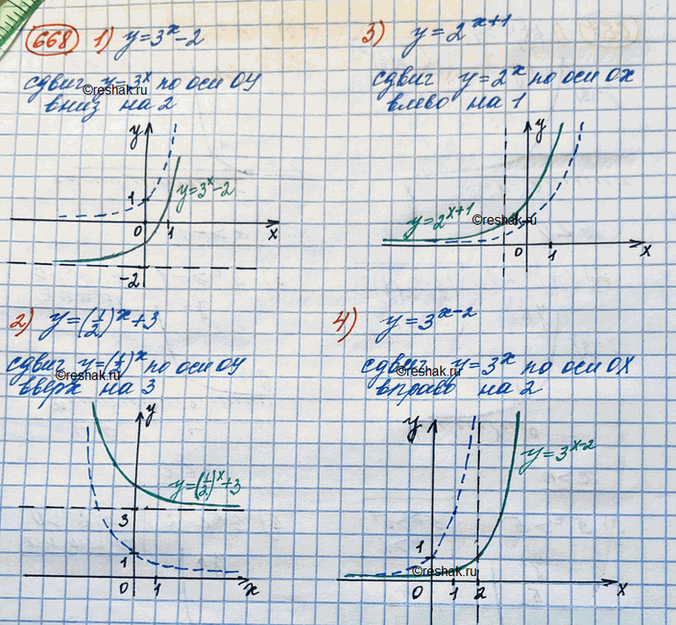 668 1) y=3^x-2
сдвиг y=3^x по оси OY
вниз на 2
©reshak.ru
y
1
y=3^x-2
0 1 x
-2
3) y=2^(x+1)
сдвиг y=2^x по оси OX
влево на 1
y
y=2^(x+1)
©reshak.ru
0 1 x
2) y=(1/2)^x+3
сдвиг y=(1/2)^x по оси OY
©reshak.ru
вверх на 3
y
y=(1/2)^x+3
3
1
0 1 x
4) y=3^(x-2)
сдвиг y=3^x по оси OX
©reshak.ru
вправо на 2
y
y=3^(x-2)
1
©reshak.ru
0 1 2 x